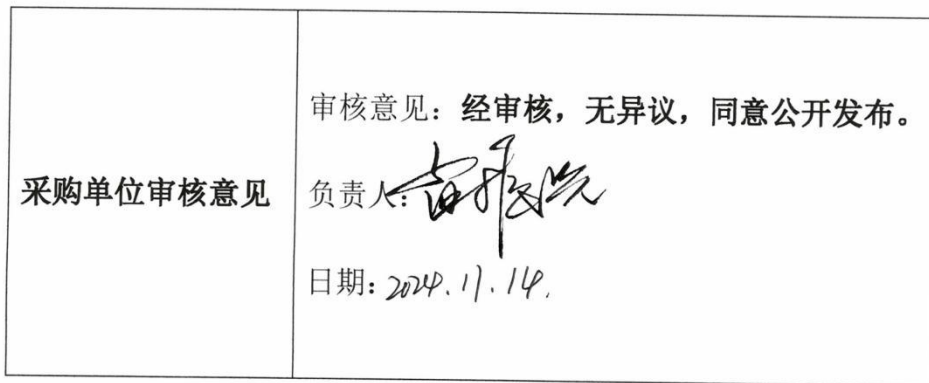 采购单位审核意见
审核意见：经审核，无异议，同意公开发布。
负责人：
日期：2024.11.14.